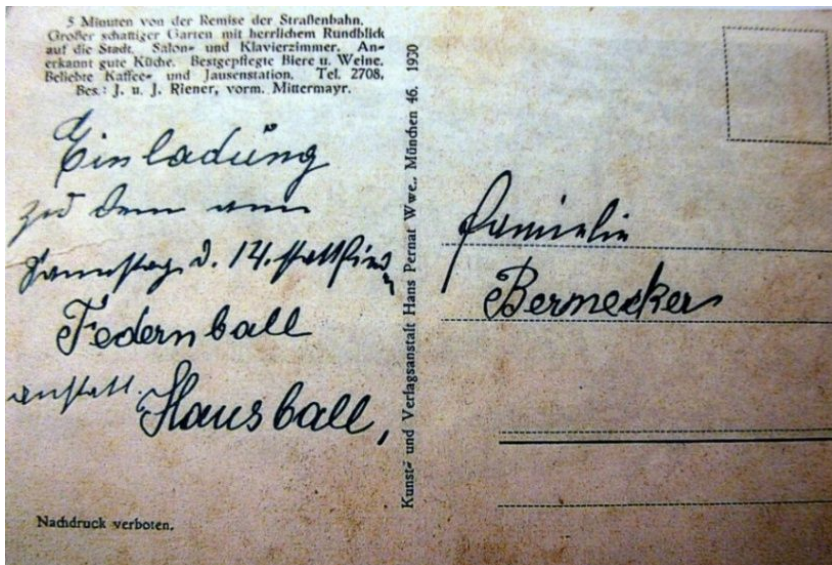 5 Minuten von der Remise der Straßenbahn.
Großer schattiger Garten mit herrlichem Rundblick
auf die Stadt. Salon- und Klavierzimmer. An-
erkannt gute Küche. Bestgepflegte Biere u. Weine.
Beliebte Kaffee- und Jausenstation. Tel. 2708.
Bes.: J. u. J. Riener, vorm. Mittermayr.
Einladung
zu dem am
Samstag d. 14. stattfind
Federnball
anstatt
Hausball,
Nachdruck verboten.
Kunst- und Verlagsanstalt Hans Pernat Wwe., München 46. 1930
Familie
Bermecker